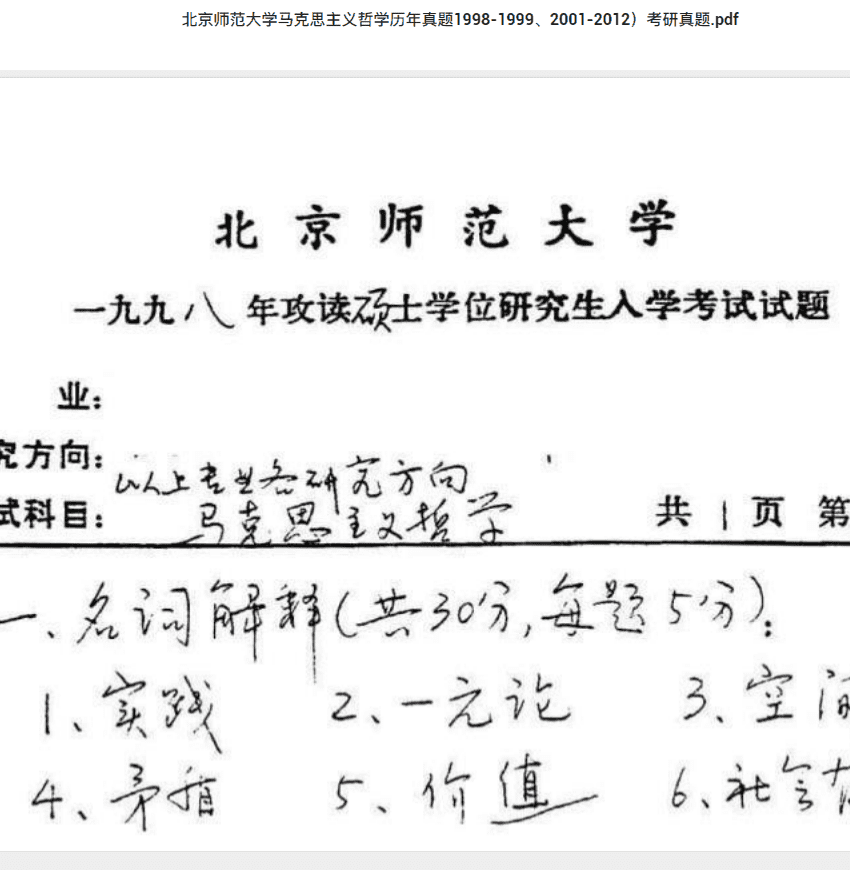 北京师范大学马克思主义哲学历年真题1998-1999、2001-2012）考研真题.pdf
北京师范大学
一九九八年攻读硕士学位研究生入学考试试题
业：
究方向：以上专业各研究方向
试科目：马克思主义哲学 共1页 第
一、名词解释（共30分，每题5分）：
1、实践 2、一元论 3、空间
4、矛盾 5、价值 6、社会